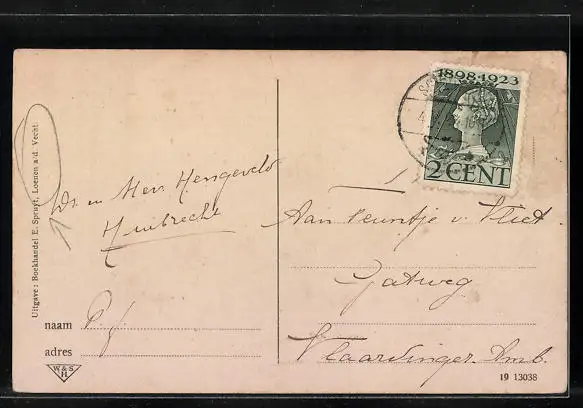 1898·1923
2 CENT
Uitgave: Boekhandel E. Spruyt, Loenen a/d. Vecht.
en Mevr. Hengeveld
Aan Teuntje v. Vliet.
Gatweg
Vlaardinger-Amb.
naam P.
adres
W & S
H
19 13038